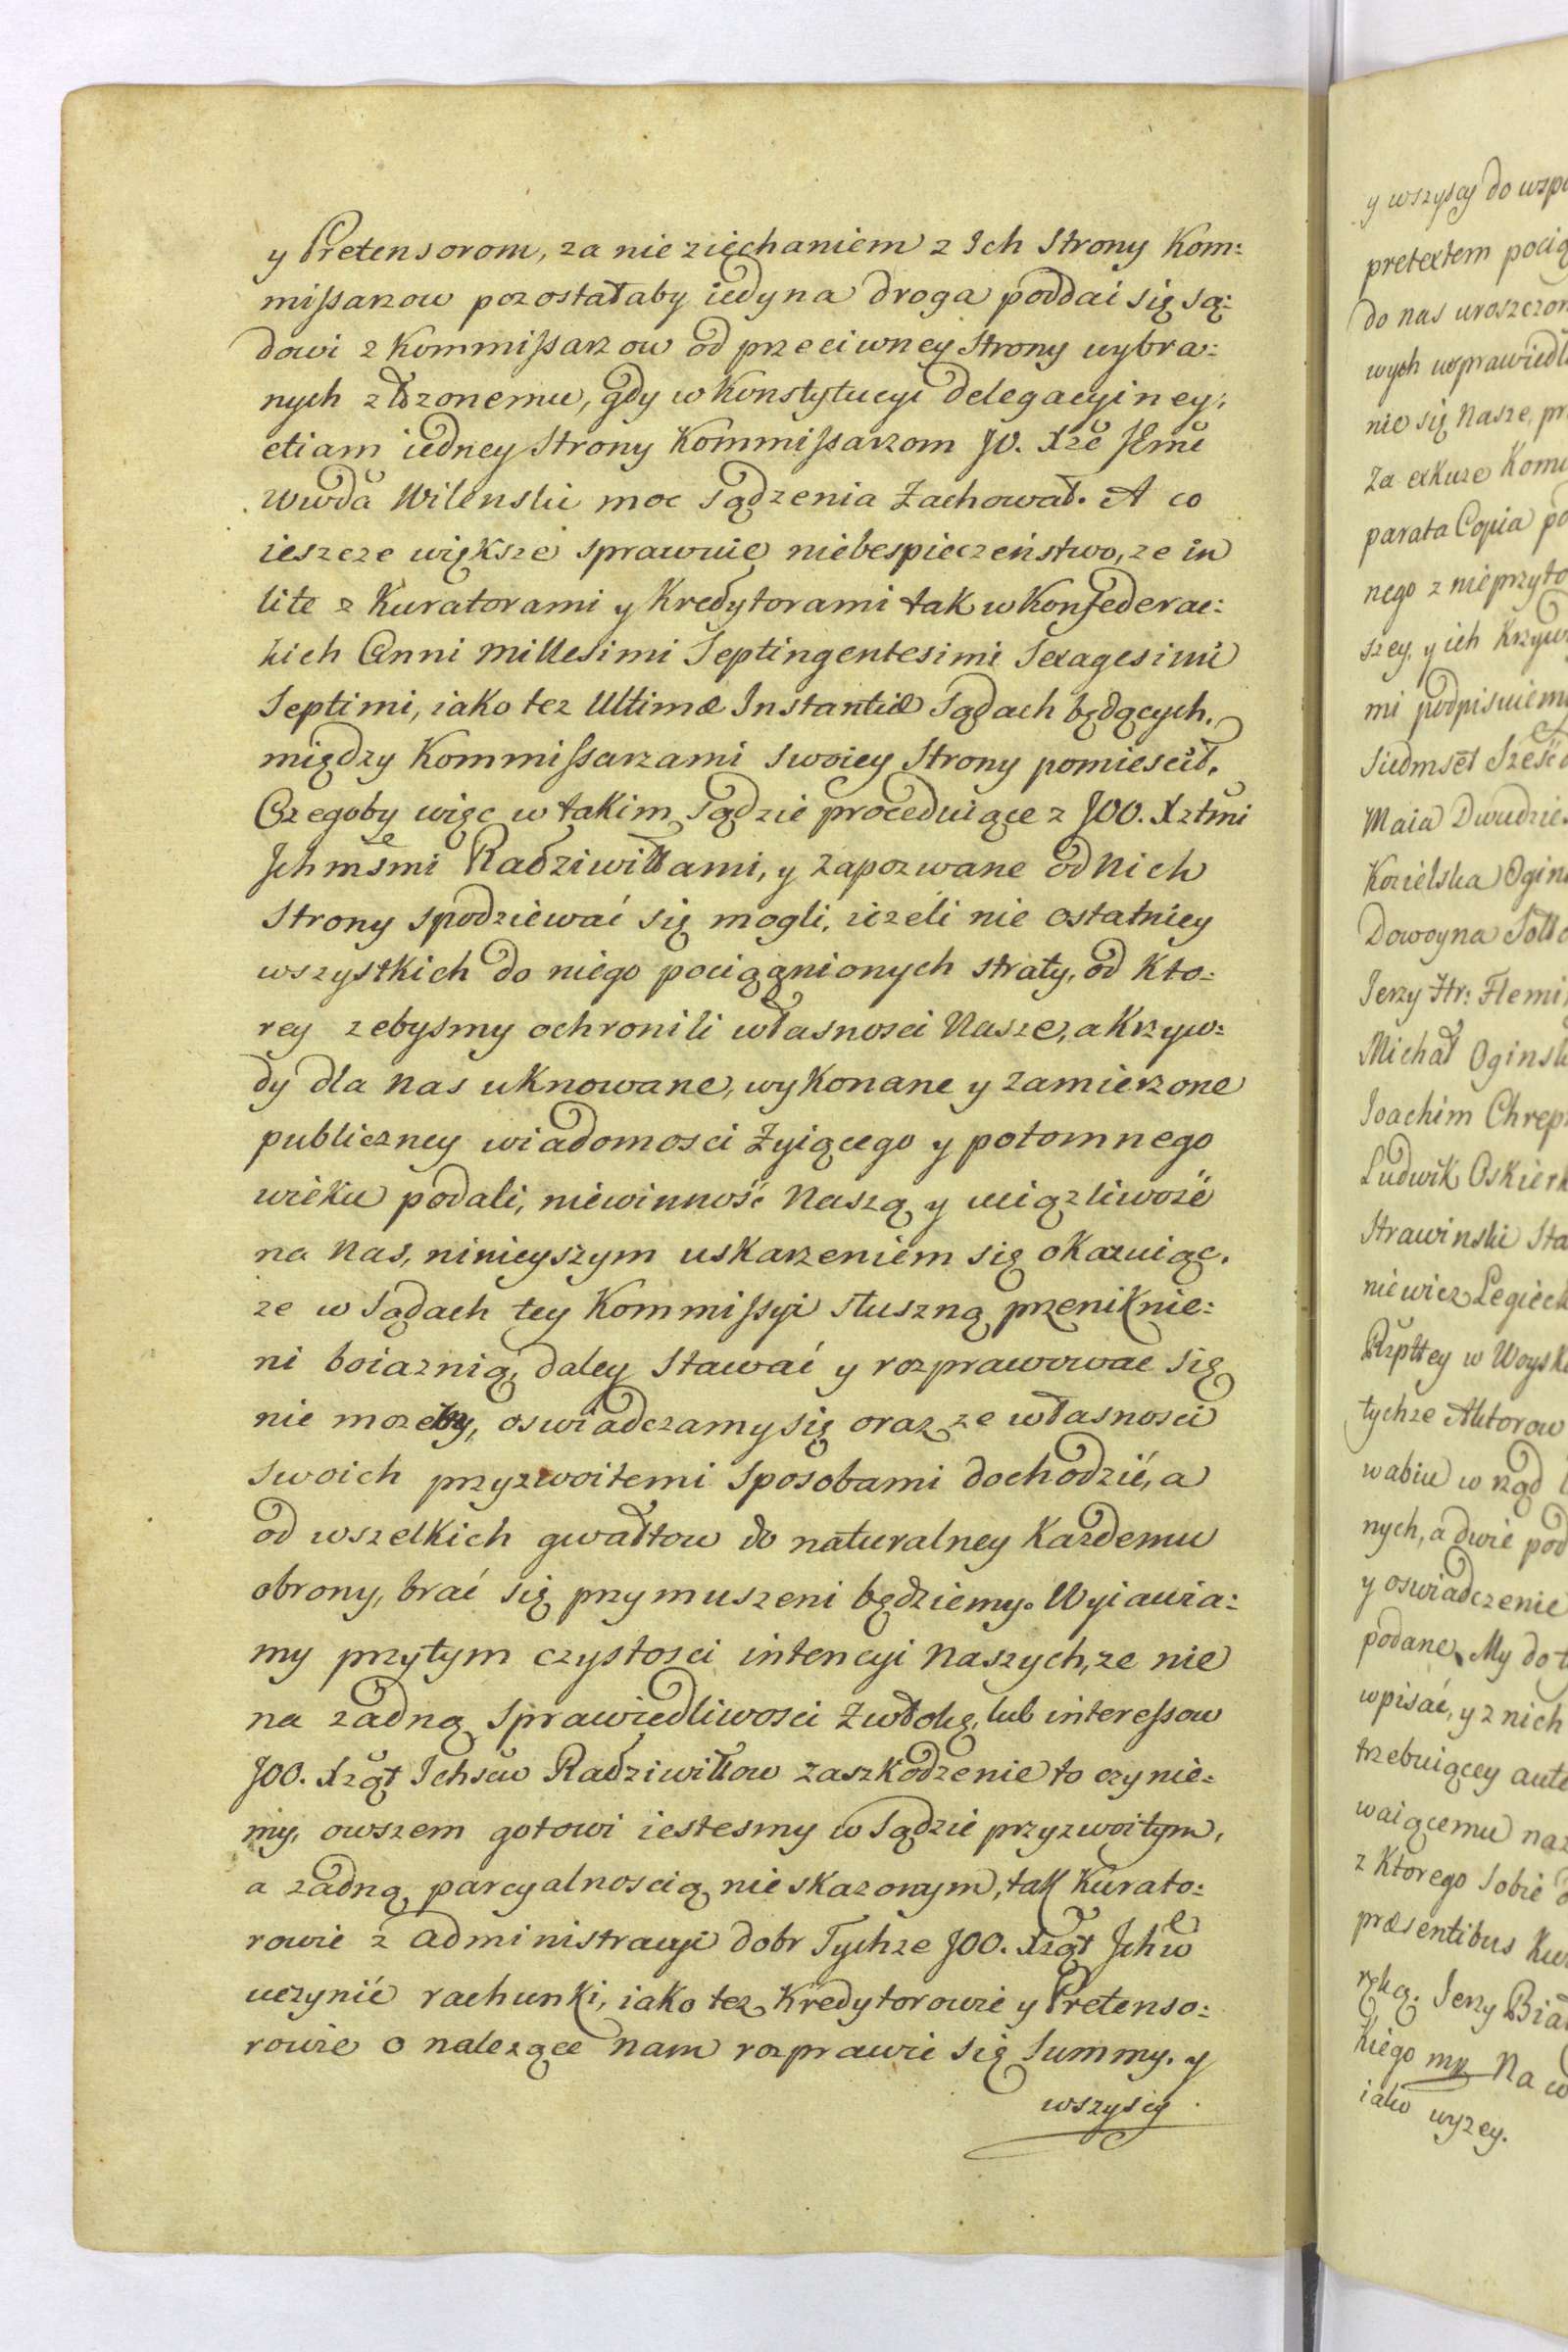 y Pretensorom, za nieziechaniem z Ich Strony Kom:
missarzow pozostałaby iedyna droga poddai się są:
dowi z Kommissarzow od przeciwney Strony wybra:
nych złozonemu, gdy w Konstytucyi delegacyiney,
etiam iedney Strony Kommissarzom JO. Xże Jemć
Wwda Wilenski moc sądzenia Zachował. A co
ieszcze większe sprawuie niebespieczeństwo, ze in
lite z Kuratorami y Kredytorami tak w Konfederac:
kich Anni Millesimi Septingentesimi Sexagesimi
Septimi, iako tez Ultimæ Instantiæ Sądach będących,
między Kommissarzami swoiey Strony pomiescił,
Czegoby więc w takim Sądzie proceduiące z JOO. Xztmi
Jchmsmi Radziwiłłami, y Zapozwane od Nich
Strony spodziewać się mogli, ieżeli nie ostatniey
wszystkich do niego pociągnionych straty, od Kto:
rey zebysmy ochronili własnosci Nasze, a Krzyw:
dy dla nas uKnowane, wyKonane y zamierzone
publiczney wiadomosci Zyiącego y potomnego
wieku podali, niewinność Naszą y uciązliwość
na Nas, ninieyszym uskarzeniem się oKazuiąc,
ze w Sądach tey Kommissyi słuszną przeniKnie:
ni boiaznią, daley Stawać y rozprawowac się
nie mozemy, oswiadczamy się oraz ze własnosci
swoich przyzwoitemi sposobami dochodzić, a
od wszelkich gwałtow do naturalney Kazdemu
obrony, brać się przymuszeni będziemy. Wyiawia:
my przytym czystosci intencyi Naszych, ze nie
na zadną Sprawiedliwosci Zwłokę, lub interessow
JOO. Xząt Ichscw Radziwiłłow zaszKodzenie to czynie:
my, owszem gotowi iestesmy w Sądzie przyzwoitym,
a zadną parcyalnoscią nieskazonym, tak Kurato:
rowie z administracyi dobr Tychze JOO. Xząt Jchw
uczynić rachunki, iako tez Kredytorowie y Pretenso:
rowie o nalezące Nam rozprawić się Summy, y
wszyscy
y wszyscy do
pretextem
do nas
wych
nie się Nasze,
Za exkuze
parata Copia
nego z
szey, y ich
mi
Siedmset
Maia
Kozielska
Dowoyna
Jerzy Hr:
Michał
Joachim
Ludwik
Strawinski
niewicz
Rzpltey w
tychze Aktorow
wabiu w rząd
nych, a dwie
y oswiadczenie
podane. My
wpisać, y z nich
trzebuiącey
waiącemu
z Ktorego Sobie
præsentibus
ręką. Jerzy
kiego mp Na
iako wyzey.